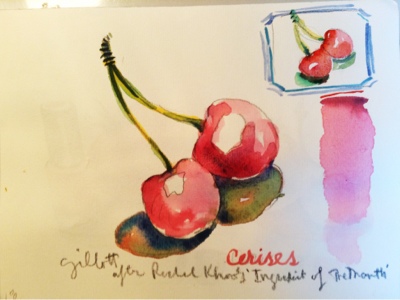 Cerises
Gillott after Rachel Khoo's 'Ingredient of The Month'